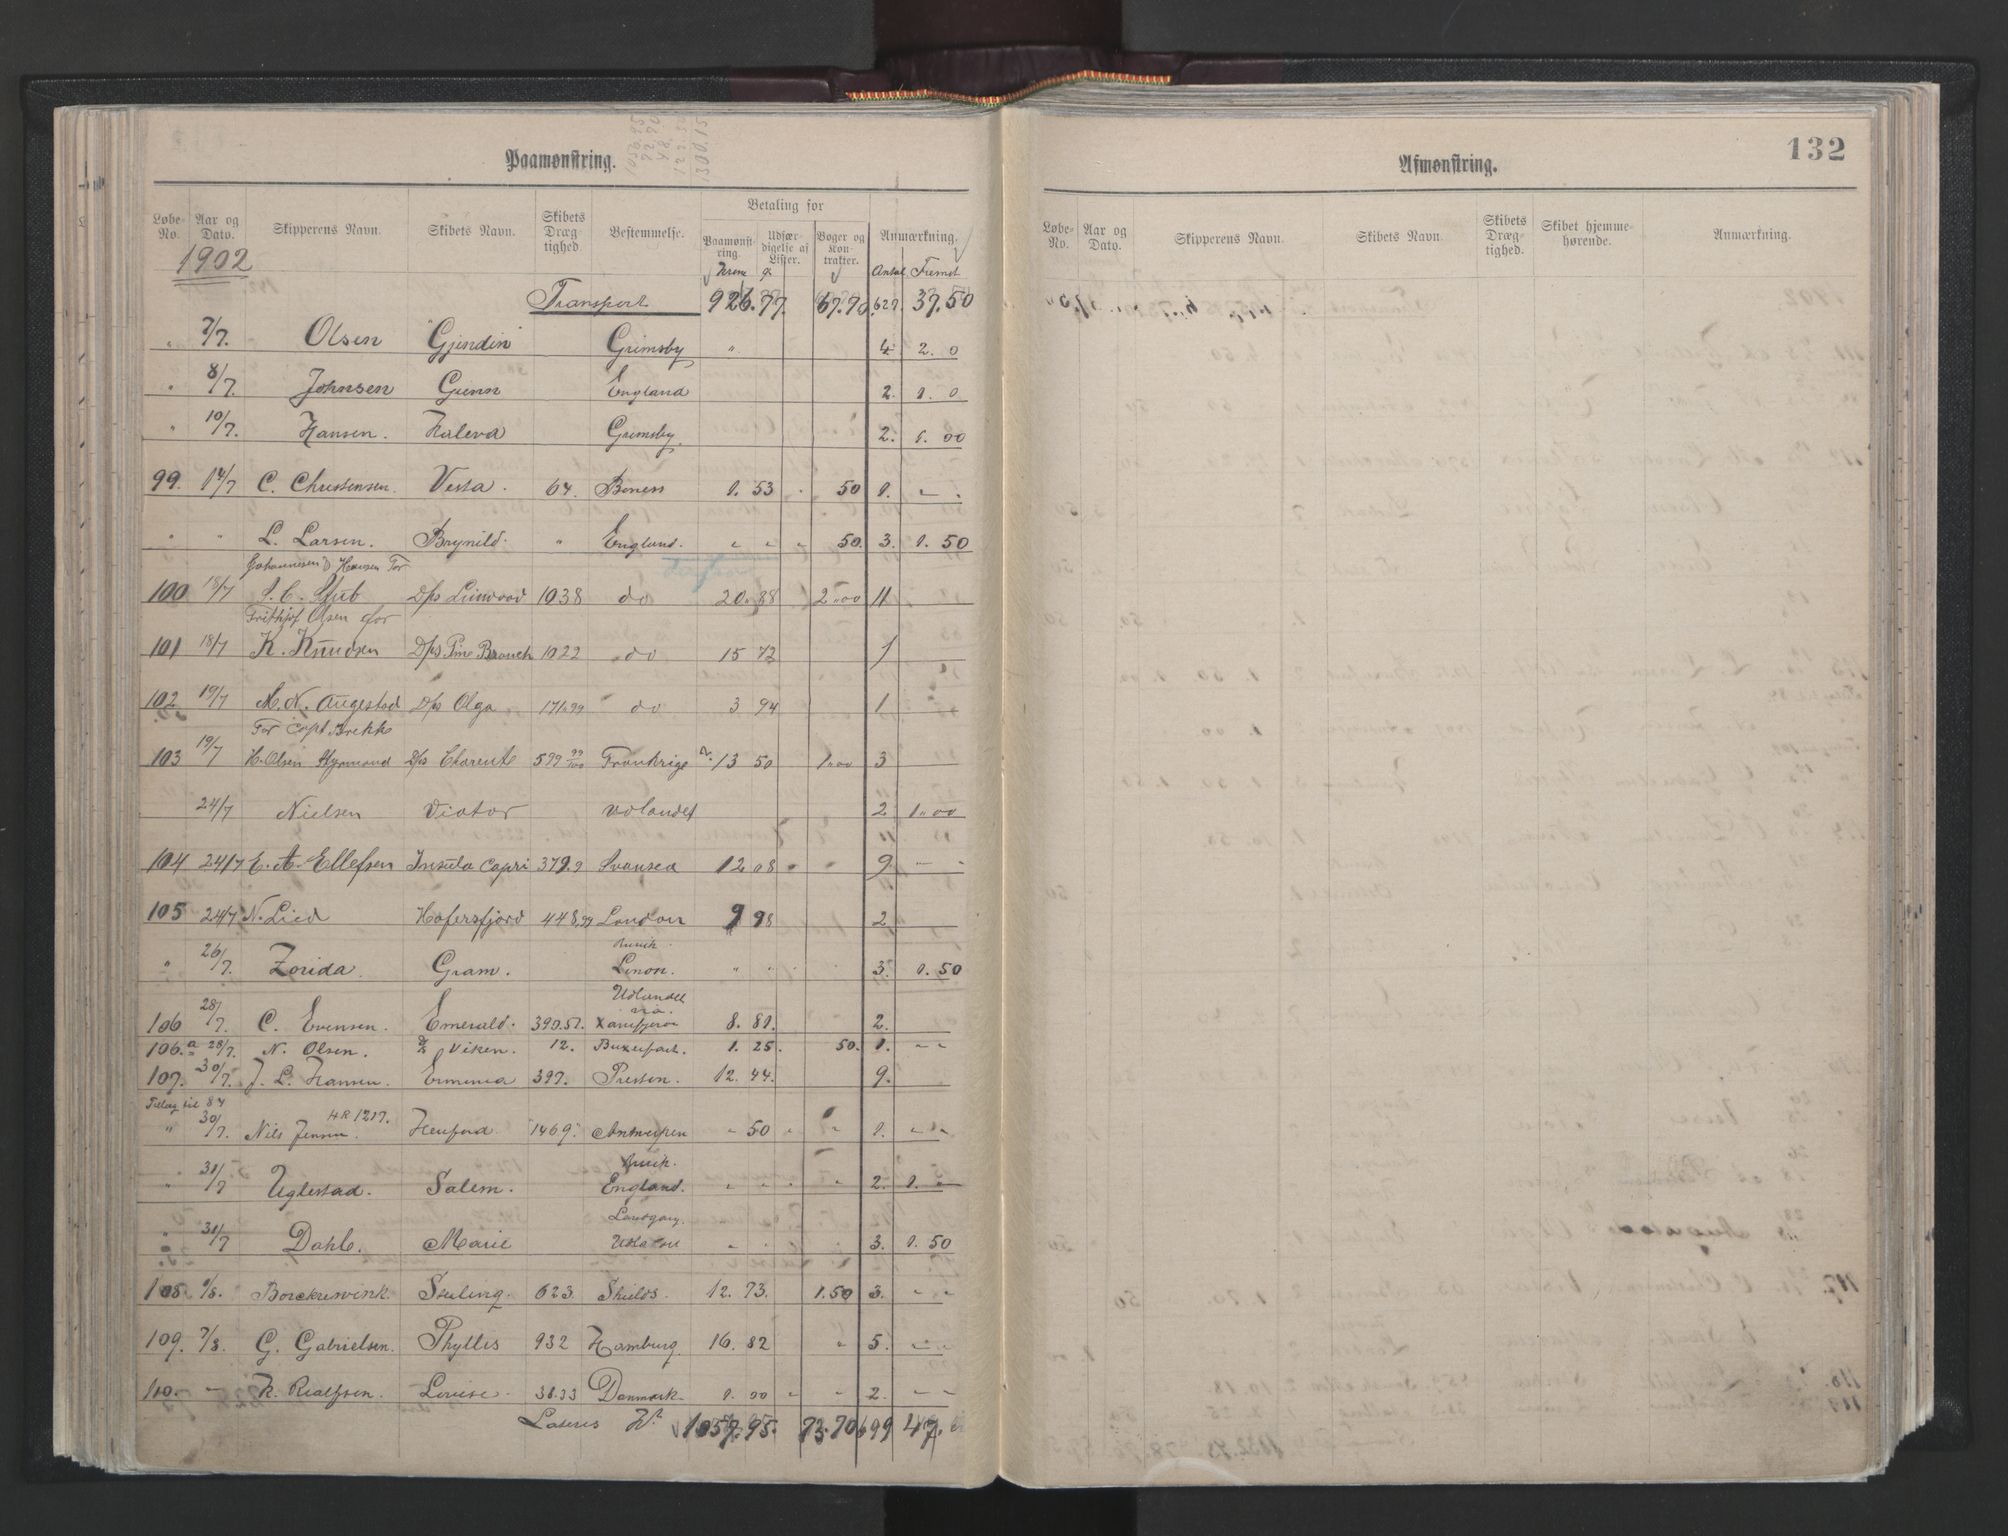 1056.95
72.70
48.
122.50
1300.15
Paamønstring.
Løbe-No. Aar og Dato. Skipperens Navn. Skibets Navn. Skibets Drægtighed. Bestemmelse. Betaling for Paamønstring. Udfærdigelse af Lister. Bøger og Kontrakter. Anmærkning.
1902 Krone Antal Fremst
Transport 926.77. 67.70. 627. 37.50
" 7/7. Olsen Gjendin Grimsby " 4 2. 0
" 8/7. Johnsen Gunn England 2. 1. 0
" 10/7. Hansen. Kaleva Grimsby. 2. 1. 00
99. 14/7 C. Christensen. Vesta. 64. Boness 1. 53 50 1. " "
" " L. Larsen. Brynild. " England. " " " 50. 3. 1. 50
Johannesen & Hansen For
100 18/7 S. C. Stub D/s Linwood 1038 do 20.88 2.00 11
Frithjof Olsen for
101 18/7 K. Knudsen D/s Pine Branch 1022 do 15 72 1
102 19/7 M. N. Augestad D/s Olga 171.99 do 3 94 1
For Capt Brekke
103 19/7 H. Olsen Styrmand D/s Charente 599 99/100 Frankrige 13 50 1.00 3
24/7 Nielsen Viator Udlandet 2 1.00
104 24/7 E. A. Ellefsen Insula Capri 379.9 Svansea 12 08 " " 9. " "
105 24/7 N. Lied Hafersfjord 448.99 London 9 98 2
" 26/7. Zorida. Gram. London. " " 3. 1. 50
106 28/7. C. Evensen. Emerald. 390.57. Udlandet via 8. 81. 2.
106.a 28/7. N. Olsen. Viken. 12. 1. 25. 50. 1. " "
107. 30/7. J. L. Hansen. Erminia 397. Preston. 12. 44. 9.
Tillæg til 84
" 30/7. Nils Jensen. HR 1217. Hereford. "1469." Antwerpen " 50 " " 1. " "
" 31/7 Uglestad. Salem. England. " " " 2. 1. "
" 31/7 Dahl. Marie Udlandet " " 3. 1. 50
108 1/8. Borchrevink. Sterling. 623. Shields. 12. 73. 1.50 3. " "
109. 7/8. G. Gabrielsen. Phyllis 932 Hamburg. 16. 82 " 5. " "
110. " K. Realfsen. Louise. 38.33 Danmark 1. 00 " " 2. " "
Lateris Kr 1057.95. 73.70 699 47.
132
Afmønstring.
Løbe-No. Aar og Dato. Skipperens Navn. Skibets Navn. Skibets Drægtighed. Skibet hjemmehørende. Anmærkning.